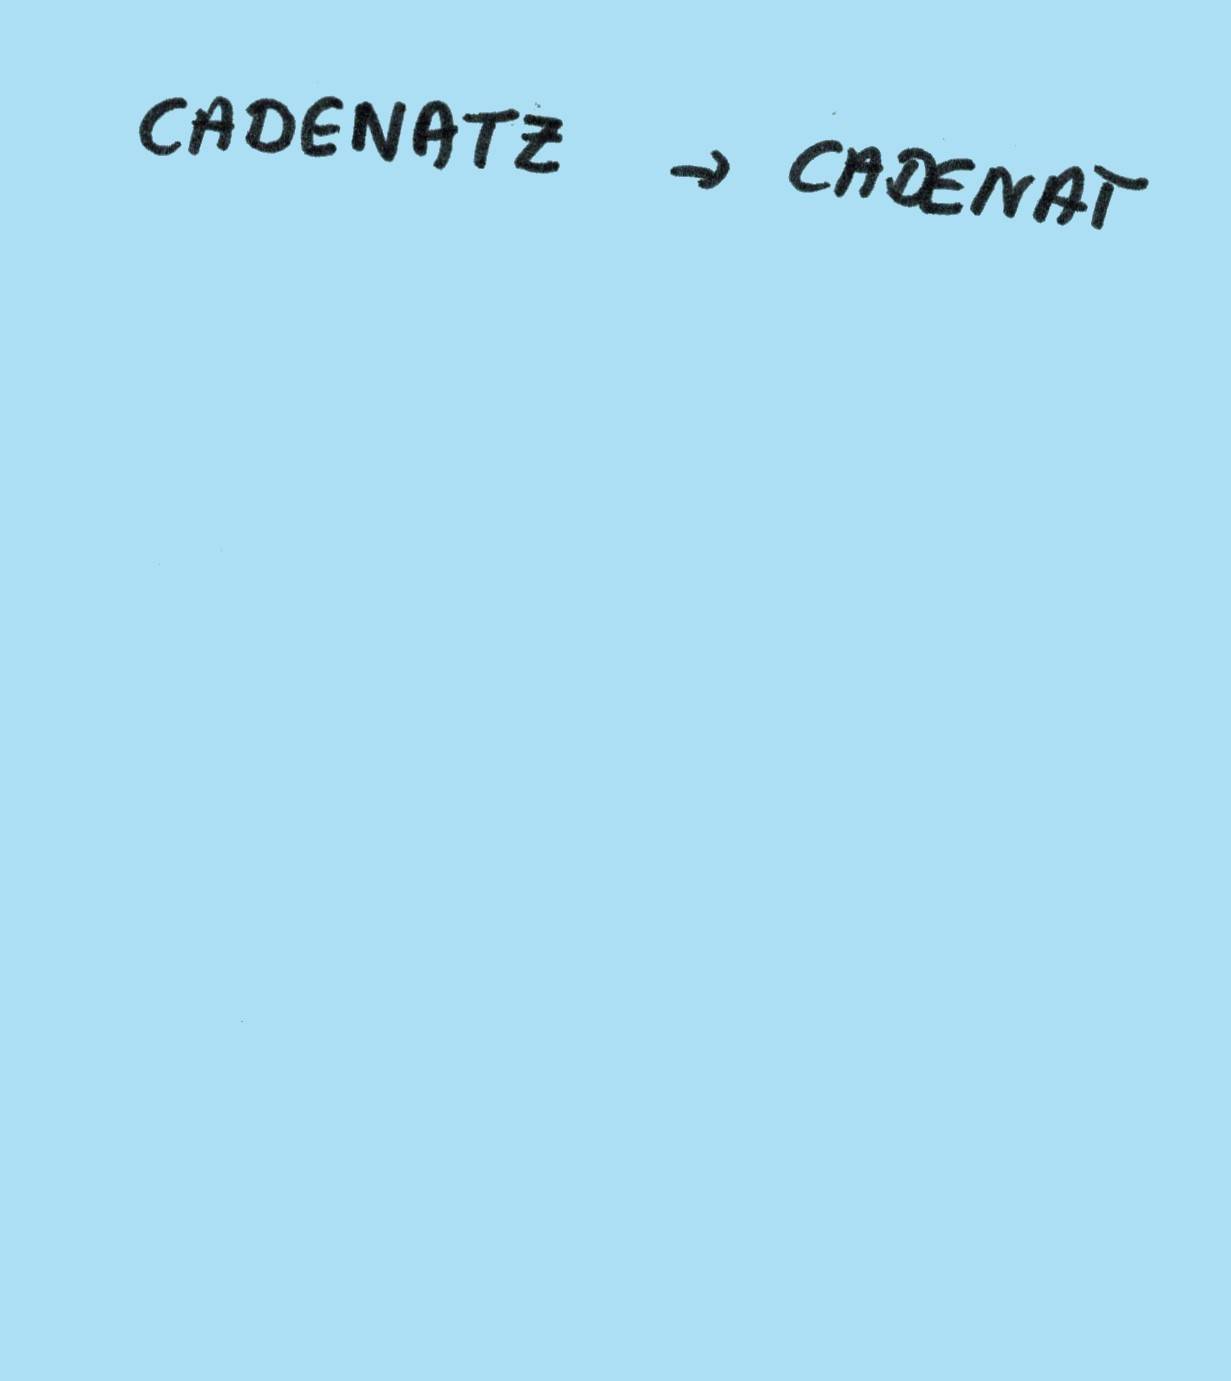 CADENATZ → CADENAT